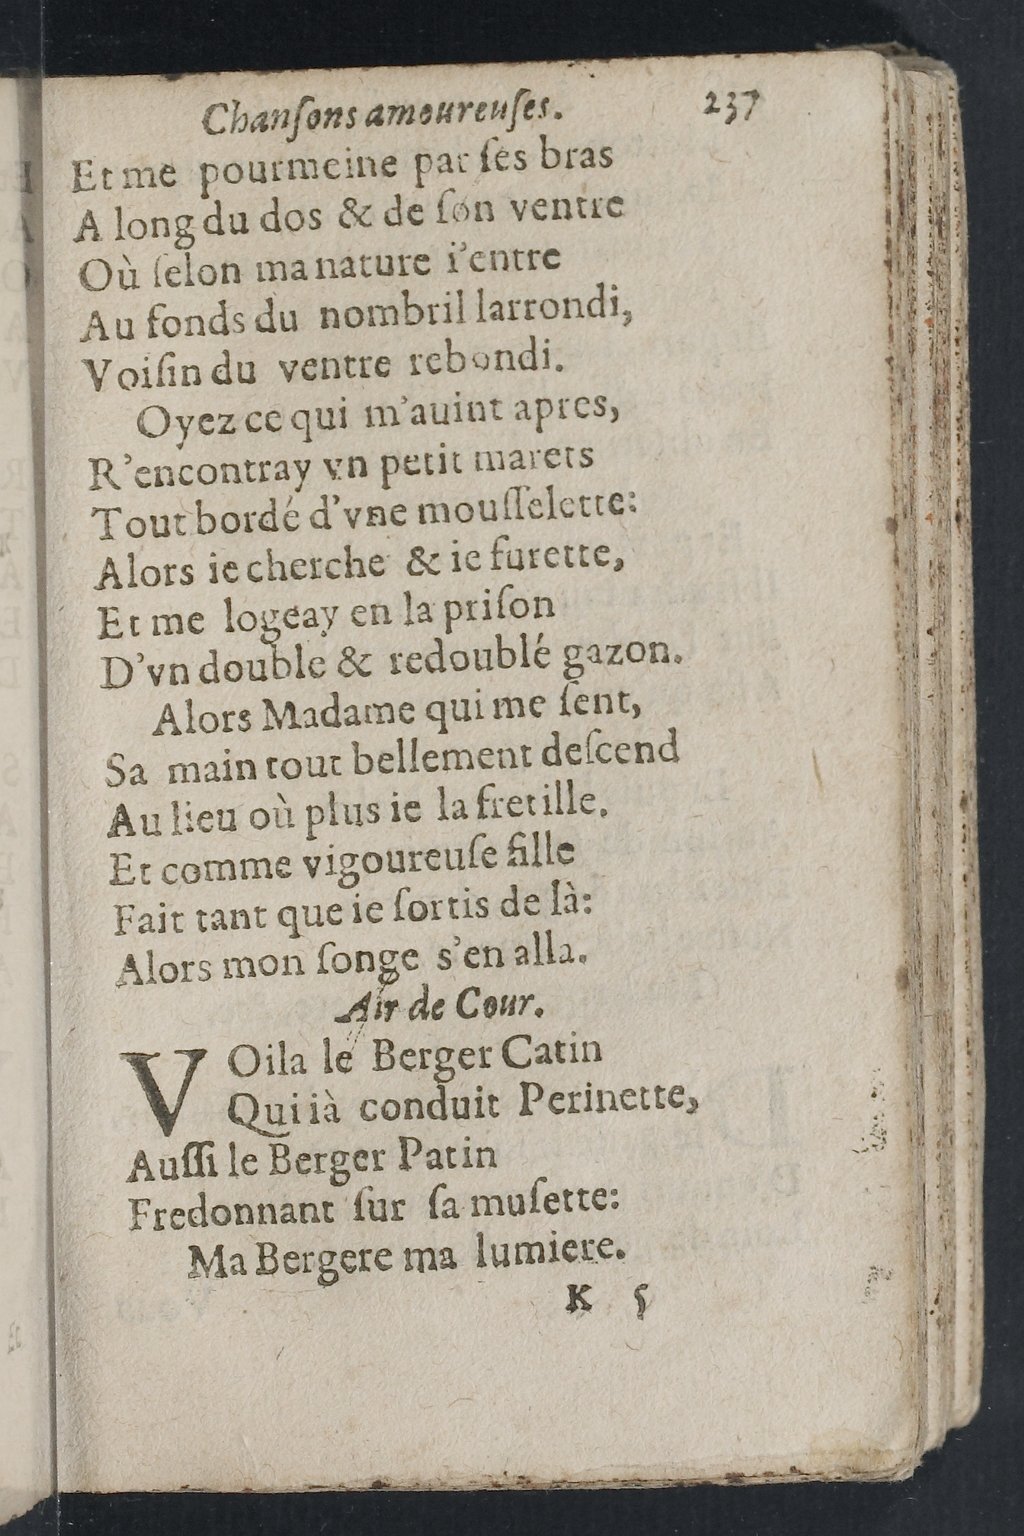 Chanſons amoureuſes. 237
Et me pourmeine par ſes bras
A long du dos & de ſon ventre
Où ſelon ma nature i'entre
Au fonds du nombril larrondi,
Voiſin du ventre rebondi.
Oyez ce qui m'auint apres,
R'encontray vn petit marets
Tout bordé d'vne mouſſelette:
Alors ie cherche & ie furette,
Et me logeay en la priſon
D'vn double & redoublé gazon.
Alors Madame qui me ſent,
Sa main tout bellement deſcend
Au lieu où plus ie la fretille.
Et comme vigoureuſe fille
Fait tant que ie ſortis de là:
Alors mon ſonge s'en alla.
Air de Cour.
VOila le Berger Catin
Qui ià conduit Perinette,
Auſſi le Berger Patin
Fredonnant ſur ſa muſette:
Ma Bergere ma lumiere.
K 5